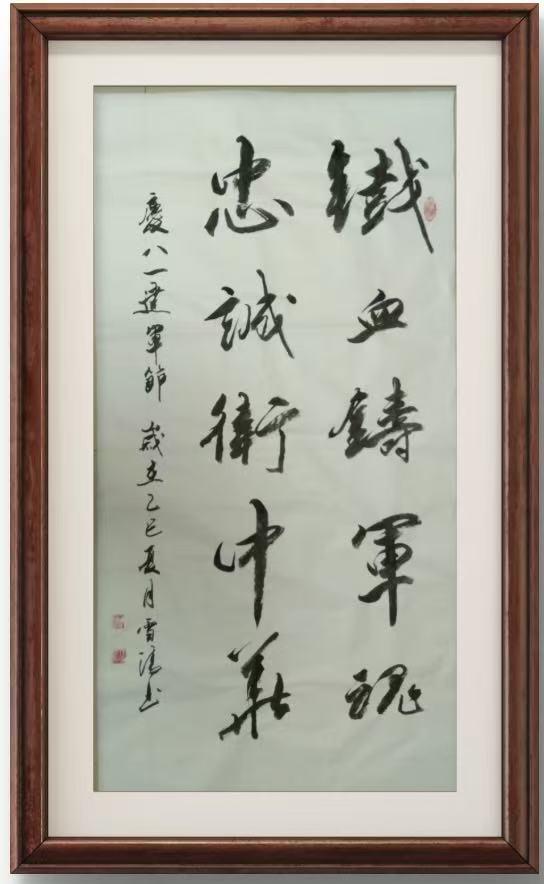 鐵血鑄軍魂
忠誠衛中華
慶八一建軍節 歲在乙巳夏月雪濤书